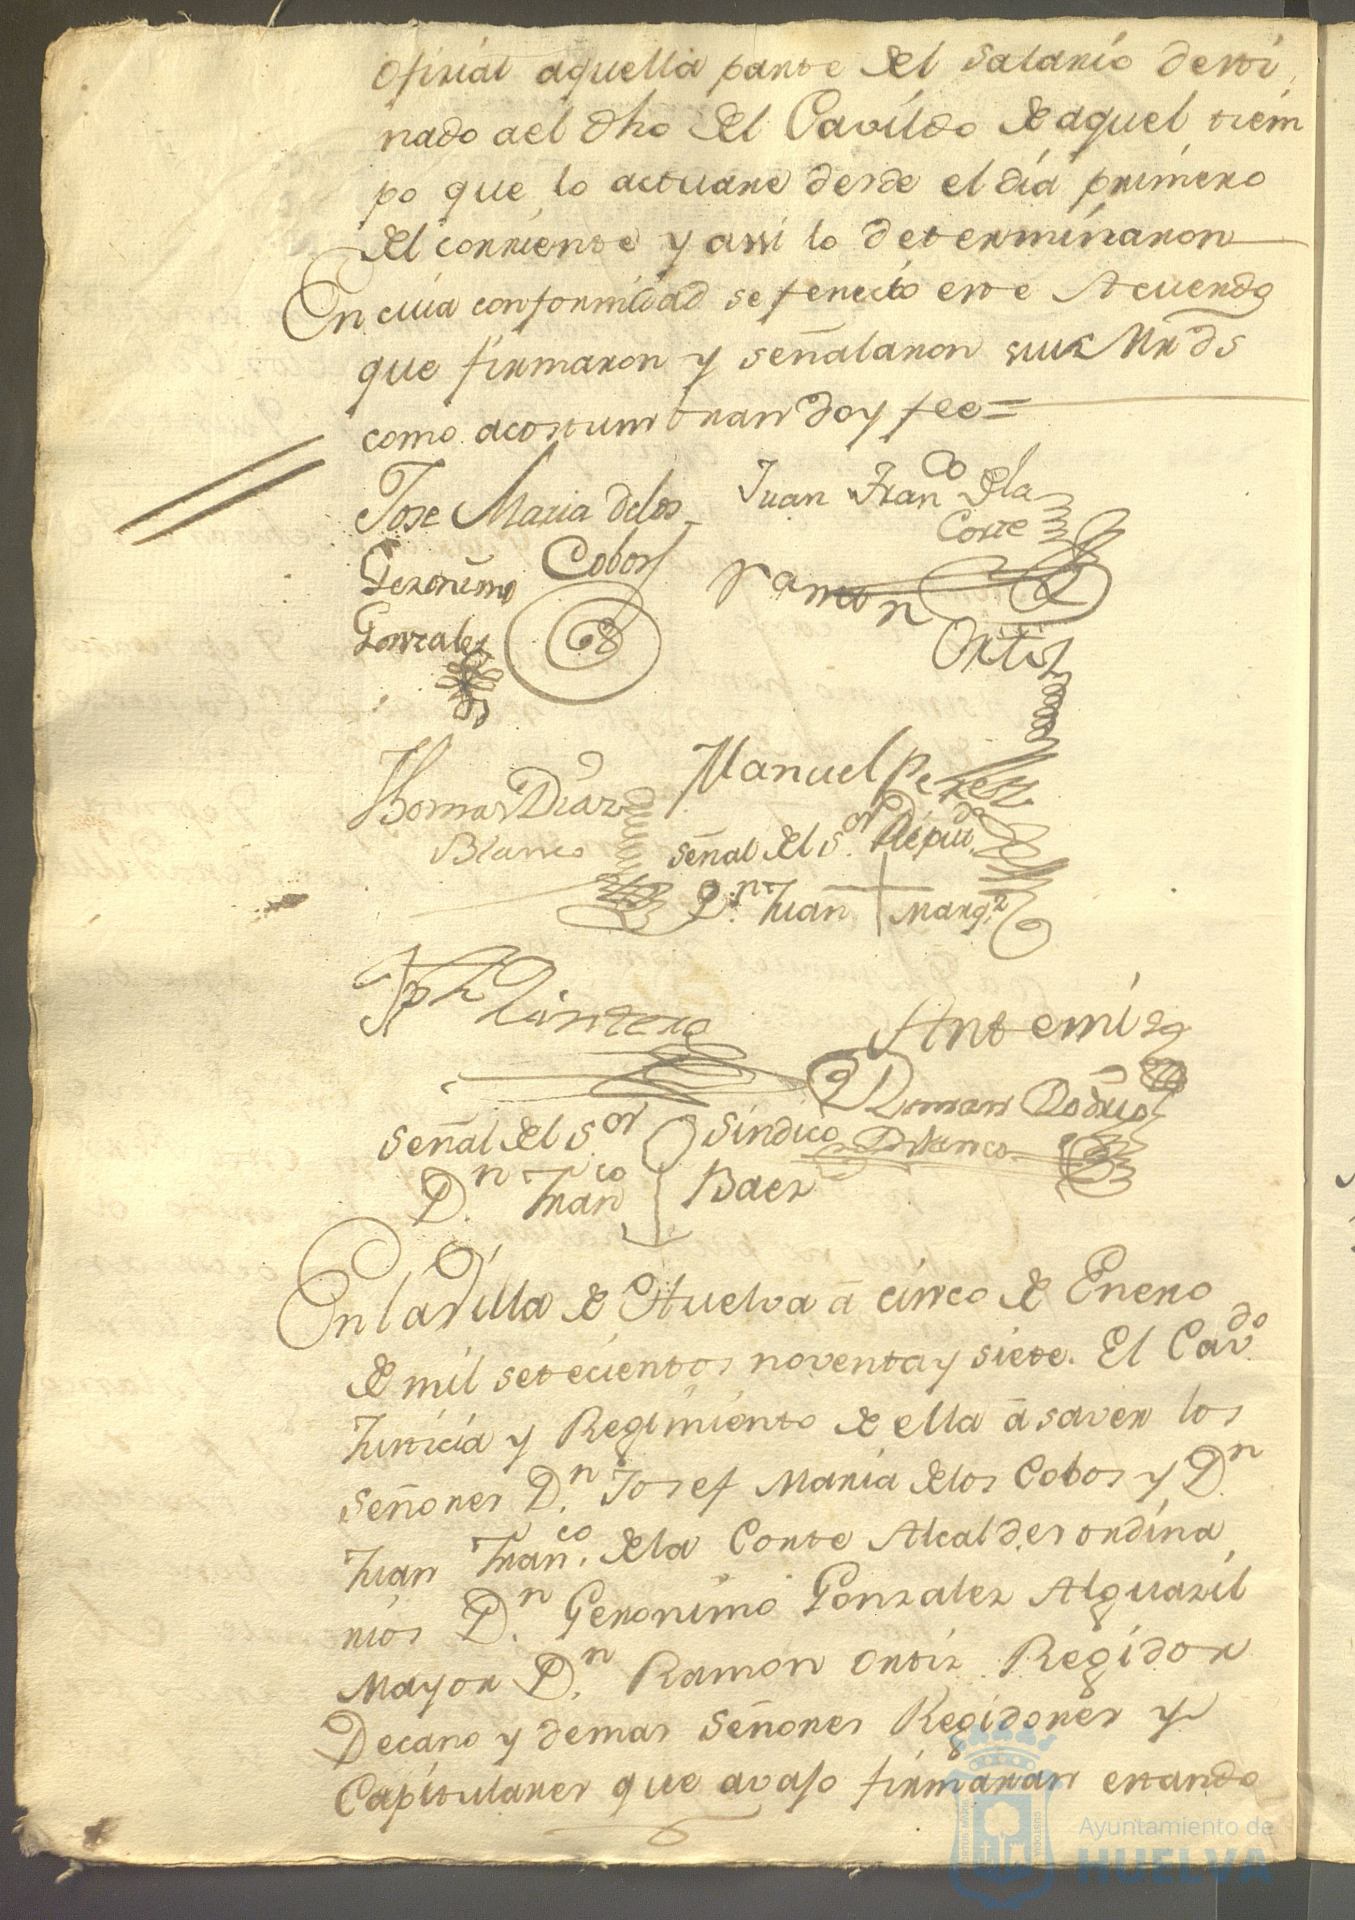 oficial aquella parte del salario desti
nado a el dho del Cavildo de aquel tiem
po que lo actuare desde el dia primero
del corriente y assi lo determinaron
En cuia conformidad se fenecio este Acuerdo
que firmaron y señalaron sus Mrds
como acostumbran doy fee =
Jose Maria delos Cobos
Juan Franco dela Corte
Geronimo Gonzalez
Ramon Ortiz
Thomas Diaz Blanco
Manuel Perez
señal del Sor Diputdo
Dn Juan + Marqz
Jph Quintero
Antemi
Roman Rodrigz Blanco
señal del Sor Sindico
Dn Franco Baez
En la Villa de Huelva â cinco de Enero
de mil setecientos noventa y siete. El Cavdo
Justicia y Regimiento de ella â saver los
señores Dn Josef Maria delos Cobos y Dn
Juan Franco dela Corte Alcaldes ordina
rios Dn Geronimo Gonzalez Alguazil
Mayor Dn Ramon Ortiz Regidor
Decano y demas señores Regidores y
Capitulares que avajo firmaran estando
Ayuntamiento de
HUELVA